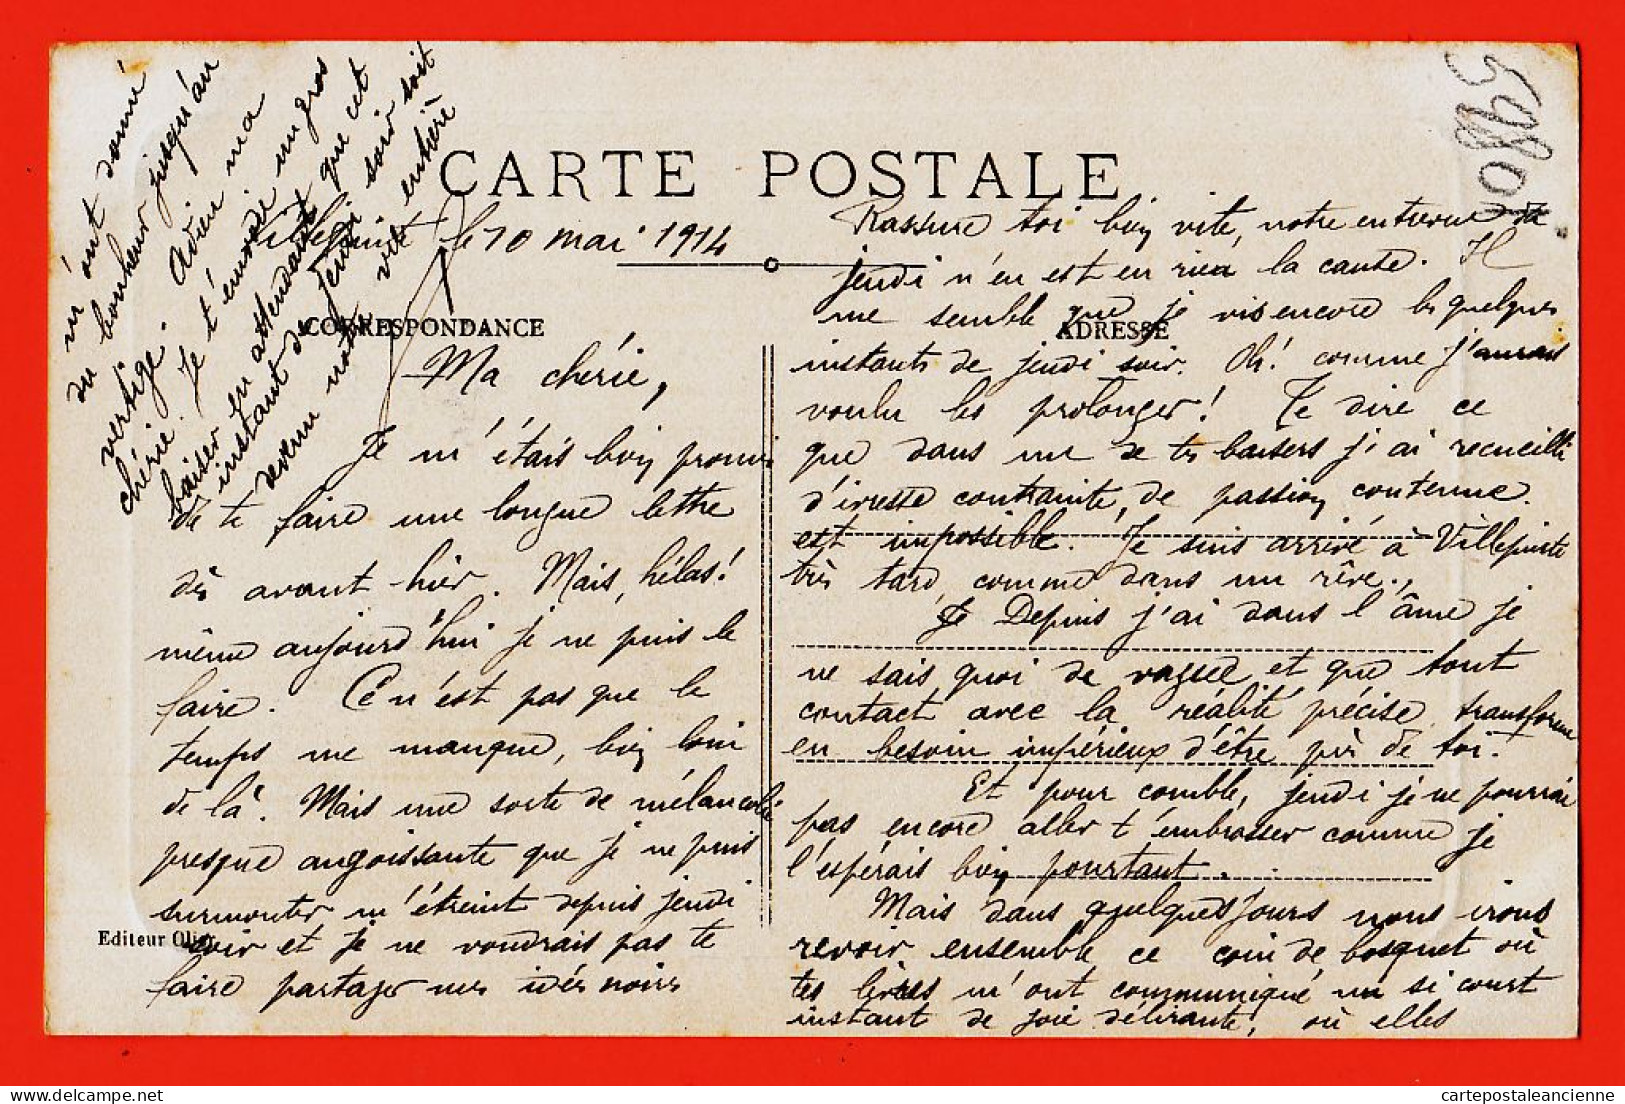 CARTE POSTALE
Villepinte le 10 mai 1914
CORRESPONDANCE
Ma chérie,
Je m'étais bien promis
de te faire une longue lettre
dès avant hier. Mais, hélas!
même aujourd'hui je ne puis le
faire. Ce n'est pas que le
temps me manque, bien loin
de là. Mais une sorte de mélancolie
presque angoissante que je ne puis
surmonter m'étreint depuis jeudi
soir et je ne voudrais pas te
faire partager mes idées noires
Editeur
ADRESSE
Rassure toi bien vite, notre entrevue de
jeudi n'en est en rien la cause. Il
me semble que je vis encore les quelques
instants de jeudi soir. Oh! comme j'aurais
voulu les prolonger! Te dire ce
que dans un de tes baisers j'ai recueilli
d'ivresse contrainte, de passion contenue
est impossible. Je suis arrivé à Villepinte
très tard, comme dans un rêve.
Je Depuis j'ai dans l'âme je
ne sais quoi de vague et que tout
contact avec la réalité précise transforme
en besoin impérieux d'être près de toi.
Et pour comble, jeudi je ne pourrai
pas encore aller t'embrasser comme je
l'espérais bien pourtant . .
Mais dans quelques jours nous irons
revoir ensemble ce coin de bosquet où
tes lèvres m'ont communiqué un si court
instant de joie délirante, où elles
m'ont donné
du bonheur jusqu'au
vertige.
Adieu ma
chérie. Je t'envoie un gros
baiser en attendant que cet
instant de jeudi soir soit
devenu notre vie entière
cartepostaleancienne